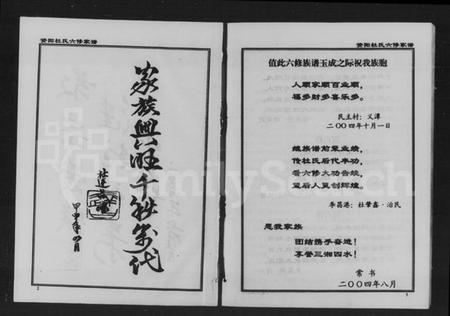 资阳杜氏六修家谱
家族興旺千秋萬代
甲申年
资阳杜氏六修家谱
值此六修族谱玉成之际祝我族胞
人顺家顺百业顺，
福多财多喜乐多。
民主村：义泽
二〇〇四年十月一日
继族谱前辈业绩，
传杜氏后代丰功，
看六修大功告竣，
望后人更创辉煌。
李昌港：杜肇鑫·治民
愿我家族
团结携手奋进！
享誉三湘四水！
常书
二〇〇四年八月
FamilySearch